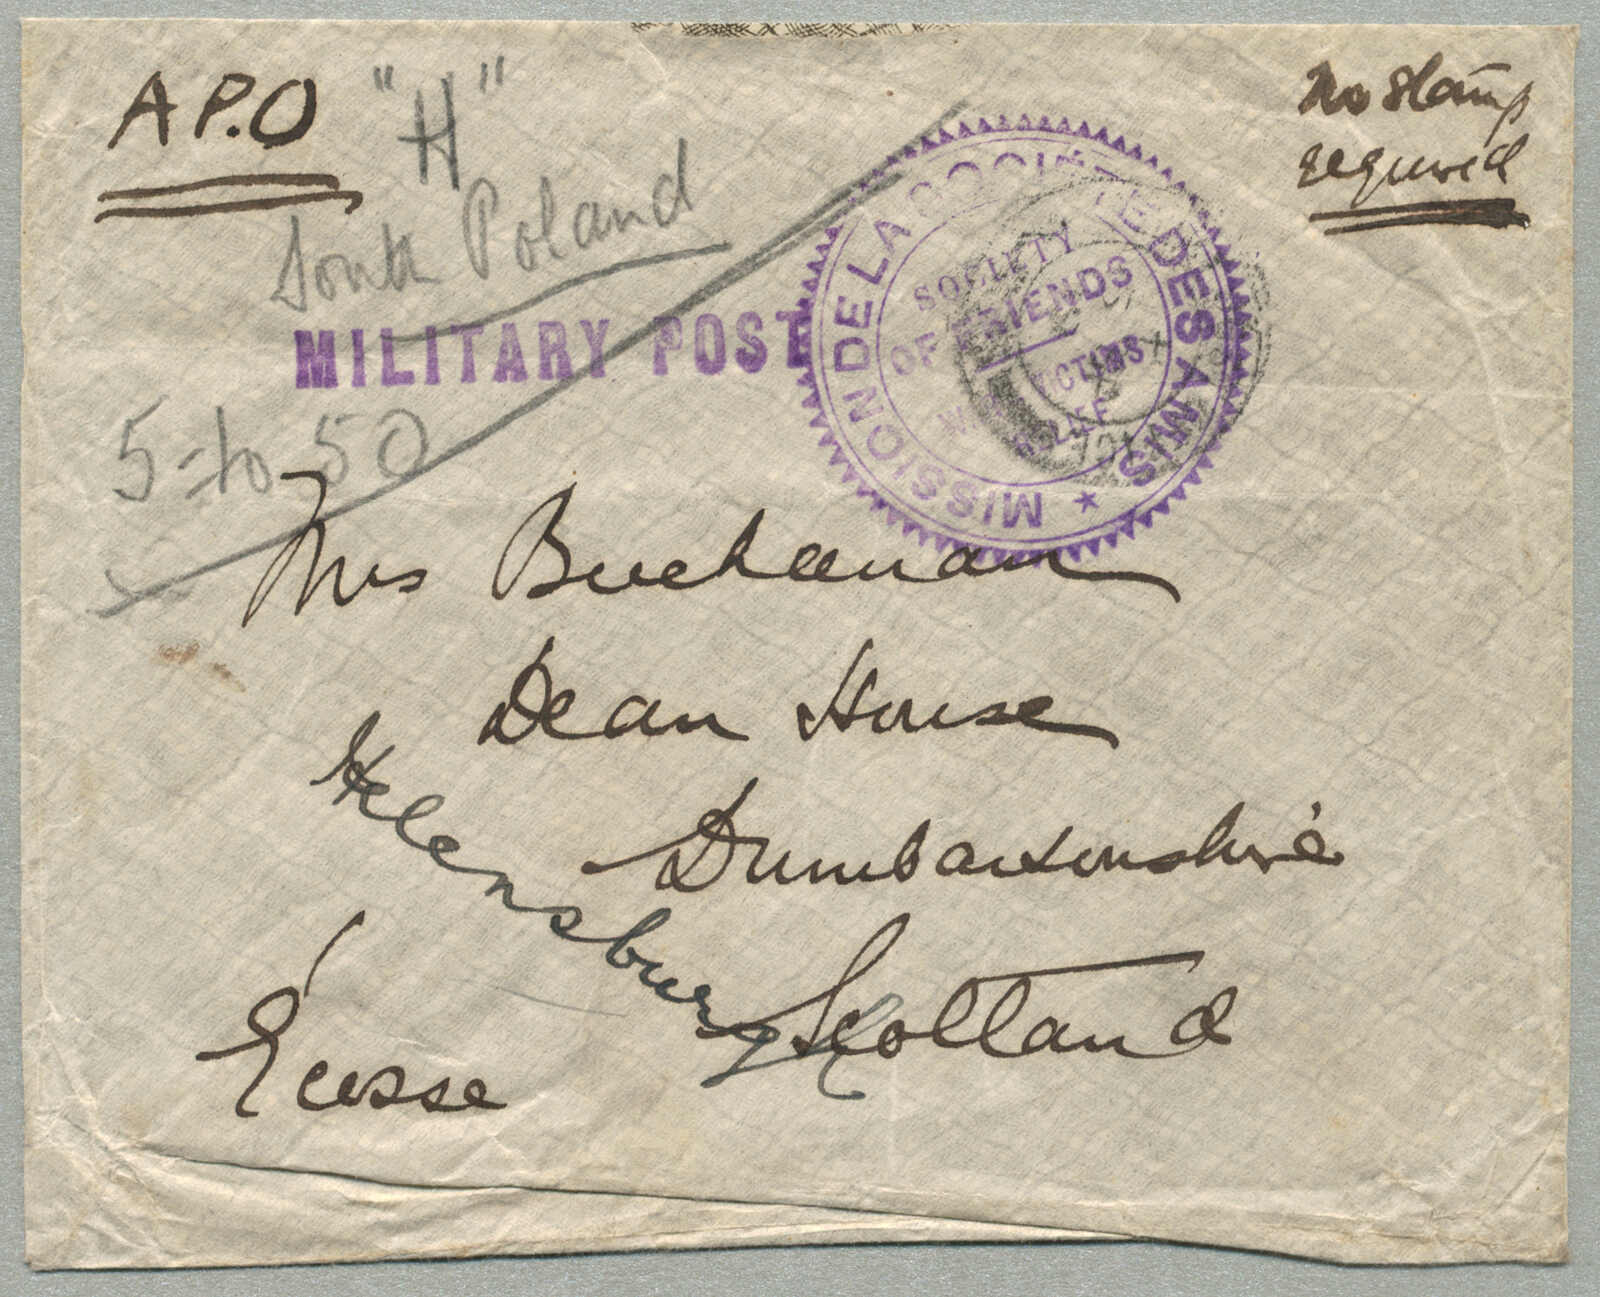 A P.O
"H"
No Stamp
required
South Poland
MILITARY POST
MISSION DE LA SOCIÉTÉ DES AMIS
SOCIETY
OF FRIENDS
WAR VICTIMS
RELIEF
5-to 50
Mrs Buchanan
Dean House
Helensburgh
Dumbartonshire
Scotland
Écosse